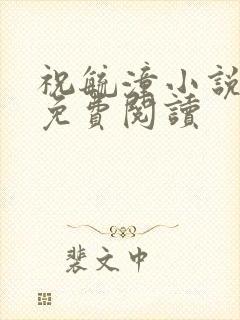 祝毓漳小説
免費閱讀
裴文中